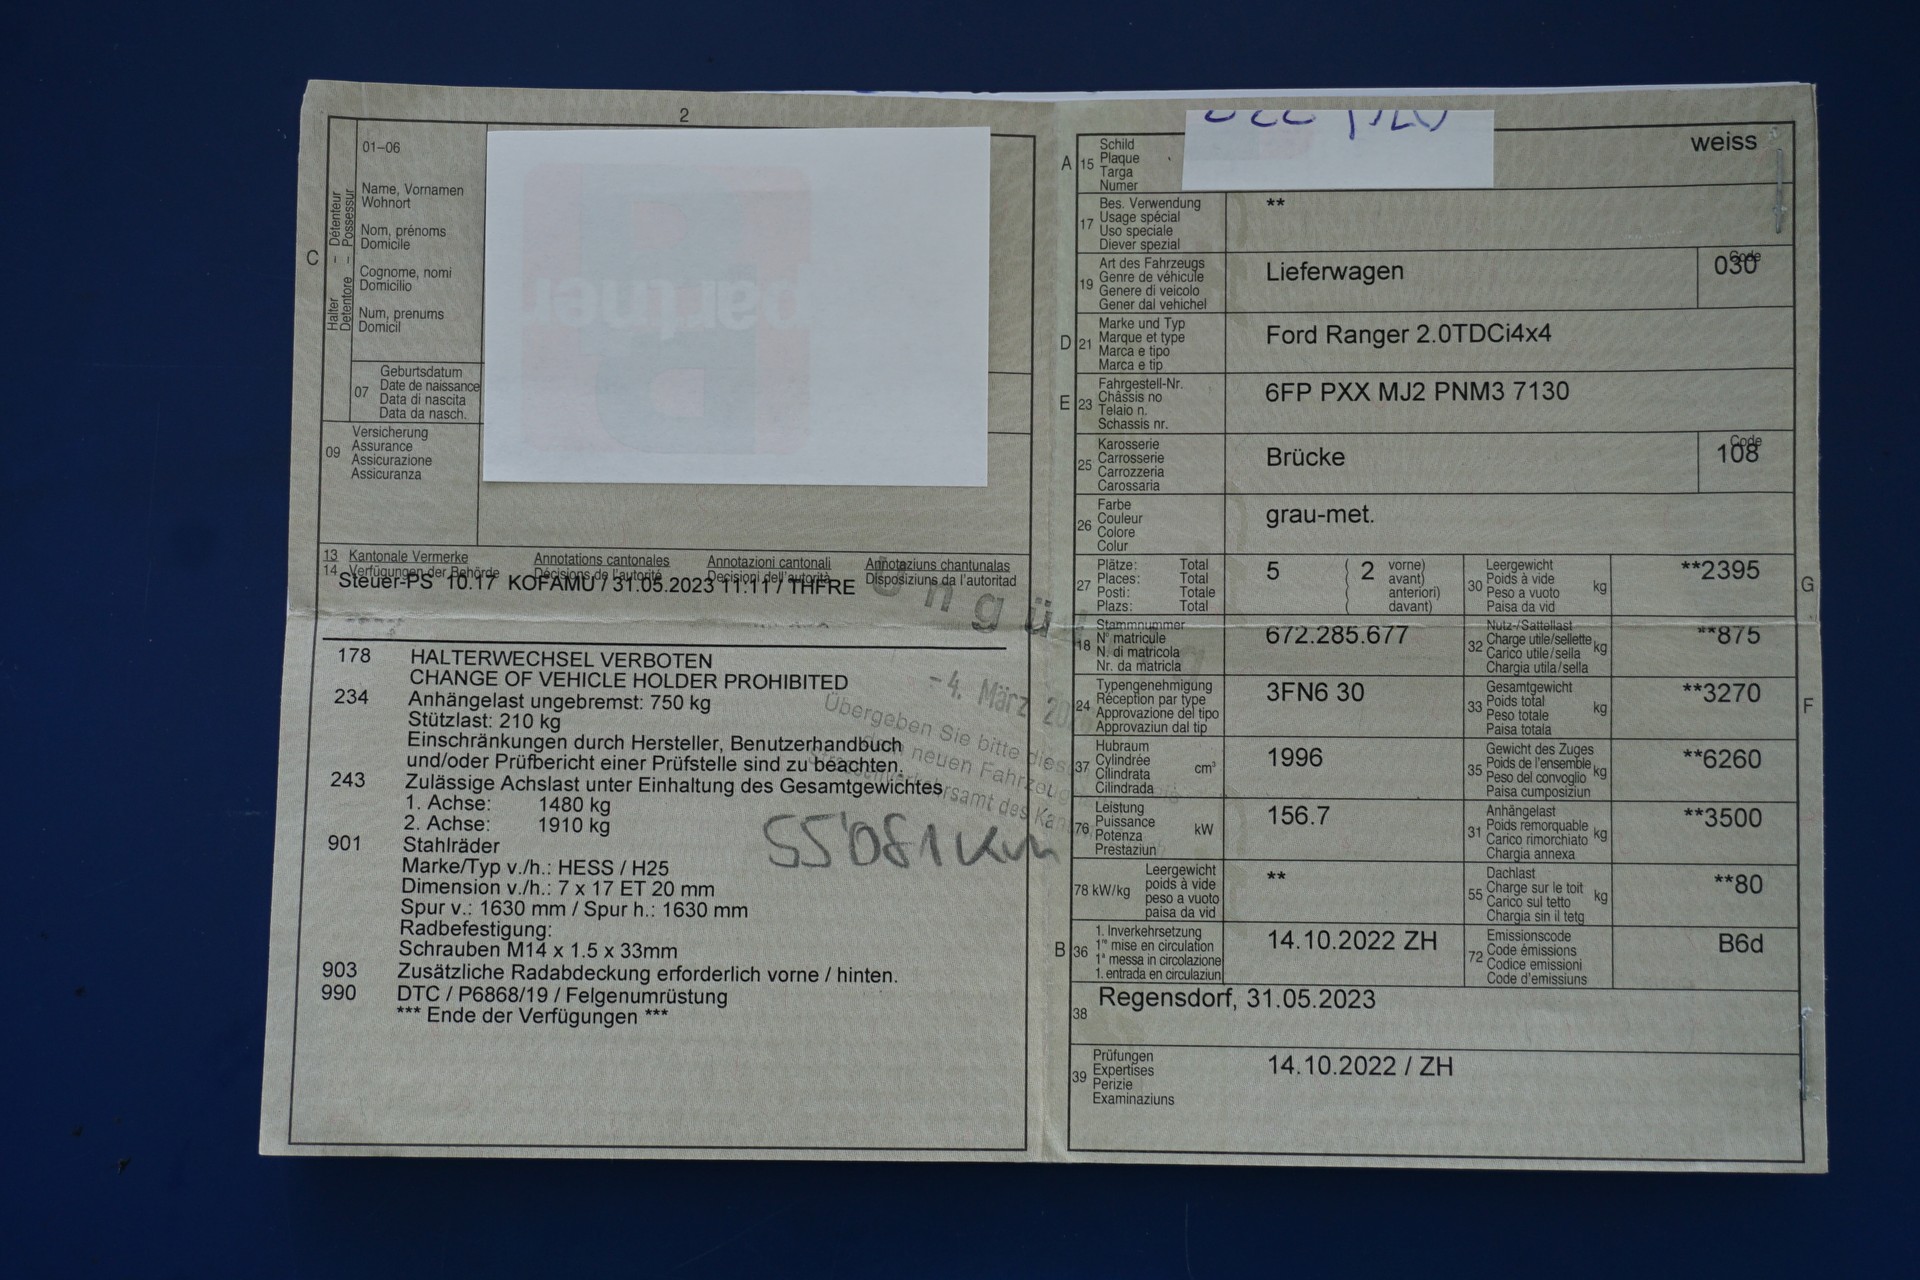 2
C
Halter – Détenteur
Detentore – Possessur
01–06
Name, Vornamen
Wohnort
Nom, prénoms
Domicile
Cognome, nomi
Domicilio
Num, prenums
Domicil
07
Geburtsdatum
Date de naissance
Data di nascita
Data da nasch.
09
Versicherung
Assurance
Assicurazione
Assicuranza
partner
13 Kantonale Vermerke Annotations cantonales Annotazioni cantonali Annotaziuns chantunalas
14 Verfügungen der Behörde Décisions de l'autorité Decisioni dell'autorità Disposiziuns da l'autoritad
Steuer-PS 10.17 KOFAMU / 31.05.2023 11:11 / THFRE
178 HALTERWECHSEL VERBOTEN
CHANGE OF VEHICLE HOLDER PROHIBITED
234 Anhängelast ungebremst: 750 kg
Stützlast: 210 kg
Einschränkungen durch Hersteller, Benutzerhandbuch
und/oder Prüfbericht einer Prüfstelle sind zu beachten.
243 Zulässige Achslast unter Einhaltung des Gesamtgewichtes
1. Achse: 1480 kg
2. Achse: 1910 kg
901 Stahlräder
Marke/Typ v./h.: HESS / H25
Dimension v./h.: 7 x 17 ET 20 mm
Spur v.: 1630 mm / Spur h.: 1630 mm
Radbefestigung:
Schrauben M14 x 1.5 x 33mm
903 Zusätzliche Radabdeckung erforderlich vorne / hinten.
990 DTC / P6868/19 / Felgenumrüstung
*** Ende der Verfügungen ***
-4. März
Übergeben Sie bitte dies
neuen Fahrzeug
55'081 km
A 15 Schild
Plaque
Targa
Numer
weiss
17 Bes. Verwendung
Usage spécial
Uso speciale
Diever spezial
**
19 Art des Fahrzeugs
Genre de véhicule
Genere di veicolo
Gener dal vehichel
Lieferwagen
Code
030
D 21 Marke und Typ
Marque et type
Marca e tipo
Marca e tip
Ford Ranger 2.0TDCi4x4
E 23 Fahrgestell-Nr.
Châssis no
Telaio n.
Schassis nr.
6FP PXX MJ2 PNM3 7130
25 Karosserie
Carrosserie
Carrozzeria
Carossaria
Brücke
Code
108
26 Farbe
Couleur
Colore
Colur
grau-met.
27 Plätze: Total
Places: Total
Posti: Totale
Plazs: Total
5 ( 2 vorne)
( avant)
( anteriori)
( davant)
30 Leergewicht
Poids à vide
Peso a vuoto
Paisa da vid
kg
**2395
G
18 Stammnummer
N° matricule
N. di matricola
Nr. da matricla
672.285.677
32 Nutz-/Sattellast
Charge utile/sellette
Carico utile/sella
Chargia utila/sella
kg
**875
24 Typengenehmigung
Réception par type
Approvazione del tipo
Approvaziun dal tip
3FN6 30
33 Gesamtgewicht
Poids total
Peso totale
Paisa totala
kg
**3270
F
37 Hubraum
Cylindrée
Cilindrata
Cilindrada
cm³
1996
35 Gewicht des Zuges
Poids de l'ensemble
Peso del convoglio
Paisa cumposiziun
kg
**6260
76 Leistung
Puissance
Potenza
Prestaziun
kW
156.7
31 Anhängelast
Poids remorquable
Carico rimorchiato
Chargia annexa
kg
**3500
78 kW/kg Leergewicht
poids à vide
peso a vuoto
paisa da vid
**
55 Dachlast
Charge sur le toit
Carico sul tetto
Chargia sin il tetg
kg
**80
B 36 1. Inverkehrsetzung
1re mise en circulation
1a messa in circolazione
1. entrada en circulaziun
14.10.2022 ZH
72 Emissionscode
Code émissions
Codice emissioni
Code d'emissiuns
B6d
38 Regensdorf, 31.05.2023
39 Prüfungen
Expertises
Perizie
Examinaziuns
14.10.2022 / ZH